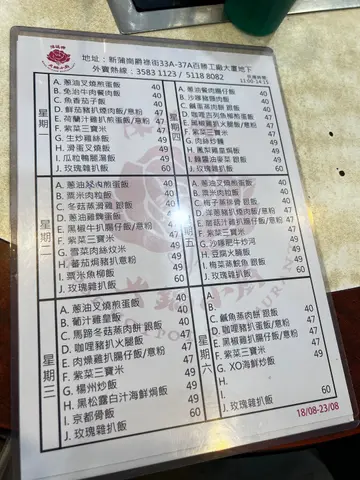 地址：新蒲崗爵祿街33A-37A百勝工廠大廈地下
外賣熱線：3583 1123 / 5118 8082
11:00-14:15
星期一
A. 蔥油叉燒煎蛋飯 40
B. 免治牛肉餐肉飯 40
C. 魚香茄子飯 40
D. 鮮茄豬扒煙肉飯/意粉 47
E. 荷蘭汁雞扒煎蛋飯/意粉 47
F. 紫菜三寶米 47
G. 生炒雞絲飯 49
H. 滑蛋叉燒飯 49
I. 瓜粒鴨腿湯飯 49
J. 玫瑰雜扒飯 60
星期二
A. 蔥油叉燒煎蛋飯 40
B. 粟米肉粒飯 40
C. 冬菇蒸滑雞 跟飯 40
D. 蔥油雞餐蛋飯 40
E. 黑椒牛扒腸仔飯/意粉 47
F. 紫菜三寶米 47
G. 雪菜肉絲炆米 49
H. 蕃茄焗豬扒意粉 49
I. 粟米魚柳飯 49
J. 玫瑰雜扒飯 60
星期三
A. 蔥油叉燒煎蛋飯 40
B. 葡汁雞皇飯 40
C. 馬蹄冬菇蒸肉餅 跟飯 40
D. 咖哩豬扒火腿飯 47
E. 肉燥雞扒腸仔飯/意粉 47
F. 紫菜三寶米 47
G. 楊州炒飯 49
H. 黑松露白汁海鮮焗飯 49
I. 京都骨飯 49
J. 玫瑰雜扒飯 60
星期四
A. 蔥油叉燒煎蛋飯 40
B. 沙嗲豬頸肉飯 40
C. 鹹蛋蒸肉餅 跟飯 40
D. 咖哩吉列魚柳飯/意粉 47
E. 黑椒雞扒火腿飯/意粉 47
F. 紫菜三寶米 47
G. 肉絲炒麵 49
H. 49
I. 49
J. 玫瑰雜扒飯 60
星期五
A. 蔥油叉燒煎蛋飯 40
B. 粟米肉粒飯 40
C. 梅子蒸排骨 跟飯 40
D. 洋蔥豬扒腸仔飯/意粉 47
E. 47
F. 紫菜三寶米 47
G. 沙嗲肥牛炒河 49
H. 豆腐火腩飯 49
I. 49
J. 玫瑰雜扒飯 60
星期六
A. 40
B.
C. 鹹魚蒸肉餅 跟飯 40
D. 咖哩豬扒飯/意粉 47
E. 黑椒雞扒腸仔飯/意粉 47
F. 紫菜三寶米 47
G. XO海鮮炒飯 49
H.
I.
J. 玫瑰雜扒飯 60
18/08-23/08